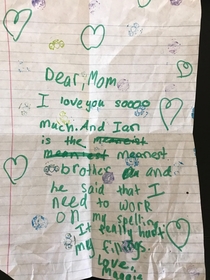 Dear, Mom,
I love you soooo
much. And Ian
is the meaneist
meanest
brother and
he said that I
need to work
on my spelling
It really hurt
my fillings.
Love,